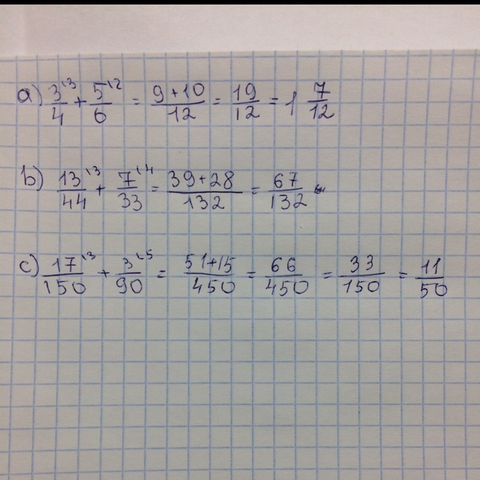 a) 3\3/4 + 5\2/6 = 9+10/12 = 19/12 = 1 7/12
b) 13\3/44 + 7\4/33 = 39+28/132 = 67/132
c) 17\3/150 + 3\5/90 = 51+15/450 = 66/450 = 33/150 = 11/50